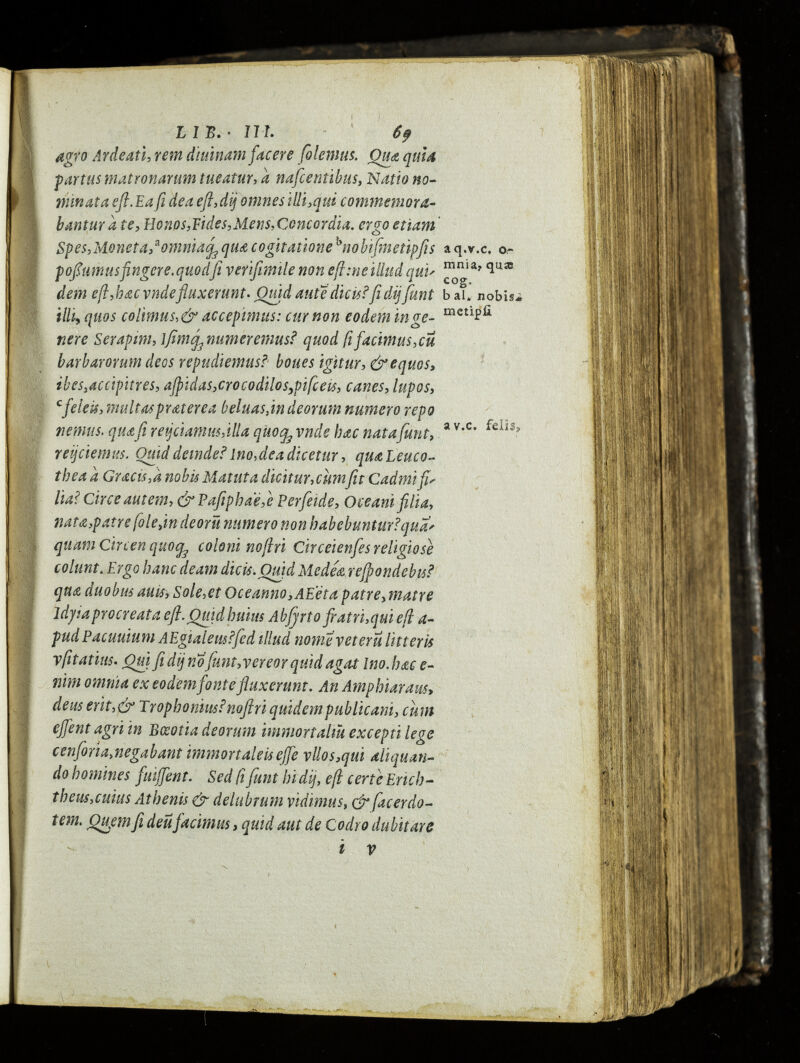 LIB. III. 69
agro Ardeati, rem diuinam facere ſolemus. Quæ quia
partus matronarum tueatur, à naſcentibus, Natio no-
minata eſt. Ea ſi dea eſt, dij omnes illi, qui commemora-
bantur à te, Honos, Fides, Mens, Concordia. ergo etiam
Spes, Moneta, ᵃomniaq́ꝫ quæ cogitatione ᵇnobiſmetipſis
poſſumus fingere. quod ſi veriſimile non eſt: ne illud qui-
dem eſt, hæc vnde fluxerunt. Quid autē dicis? ſi dij ſunt
illi, quos colimus, & accepimus: cur non eodem in ge-
nere Serapim, Iſimq́ꝫ numeremus? quod ſi facimus, cū
barbarorum deos repudiemus? boues igitur, & equos,
ibes, accipitres, aſpidas, crocodilos, piſceis, canes, lupos,
ᶜfeleis, multas præterea beluas, in deorum numero repo
nemus. quæ ſi reijciamus, illa quoqꝫ vnde hæc nata ſunt,
reijciemus. Quid deinde? Ino, dea dicetur, quæ Leuco-
thea à Græcis, à nobis Matuta dicitur, cùm ſit Cadmi fi-
lia? Circe autem, & Paſiphaë, è Perſeide, Oceani filia,
nata, patre ſole, in deorū numero non habebuntur? quā-
quam Circen quoqꝫ coloni noſtri Circeienſes religioſè
colunt. Ergo hanc deam dicis. Quid Medeæ reſpondebis?
quæ duobus auis, Sole, et Oceanno, AEëta patre, matre
Idyia procreata eſt. Quid huius Abſyrto fratri, qui eſt a-
pud Pacuuium AEgialeus? ſed illud nomē veterū litteris
vſitatius. Qui ſi dij nō ſunt, vereor quid agat Ino. hæc e-
nim omnia ex eodem fonte fluxerunt. An Amphiaraus,
deus erit, & Trophonius? noſtri quidem publicani, cùm
eſſent agri in Bœotia deorum immortaliū excepti lege
cenſoria, negabant immortaleis eſſe vllos, qui aliquan-
do homines fuiſſent. Sed ſi ſunt hi dij, eſt certè Erich-
theus, cuius Athenis & delubrum vidimus, & ſacerdo-
tem. Quem ſi deū facimus, quid aut de Codro dubitare
i v
a q.v.c. o-
mnia, quæ
cog.
b al. nobis-
metipſi
a v.c. felis,